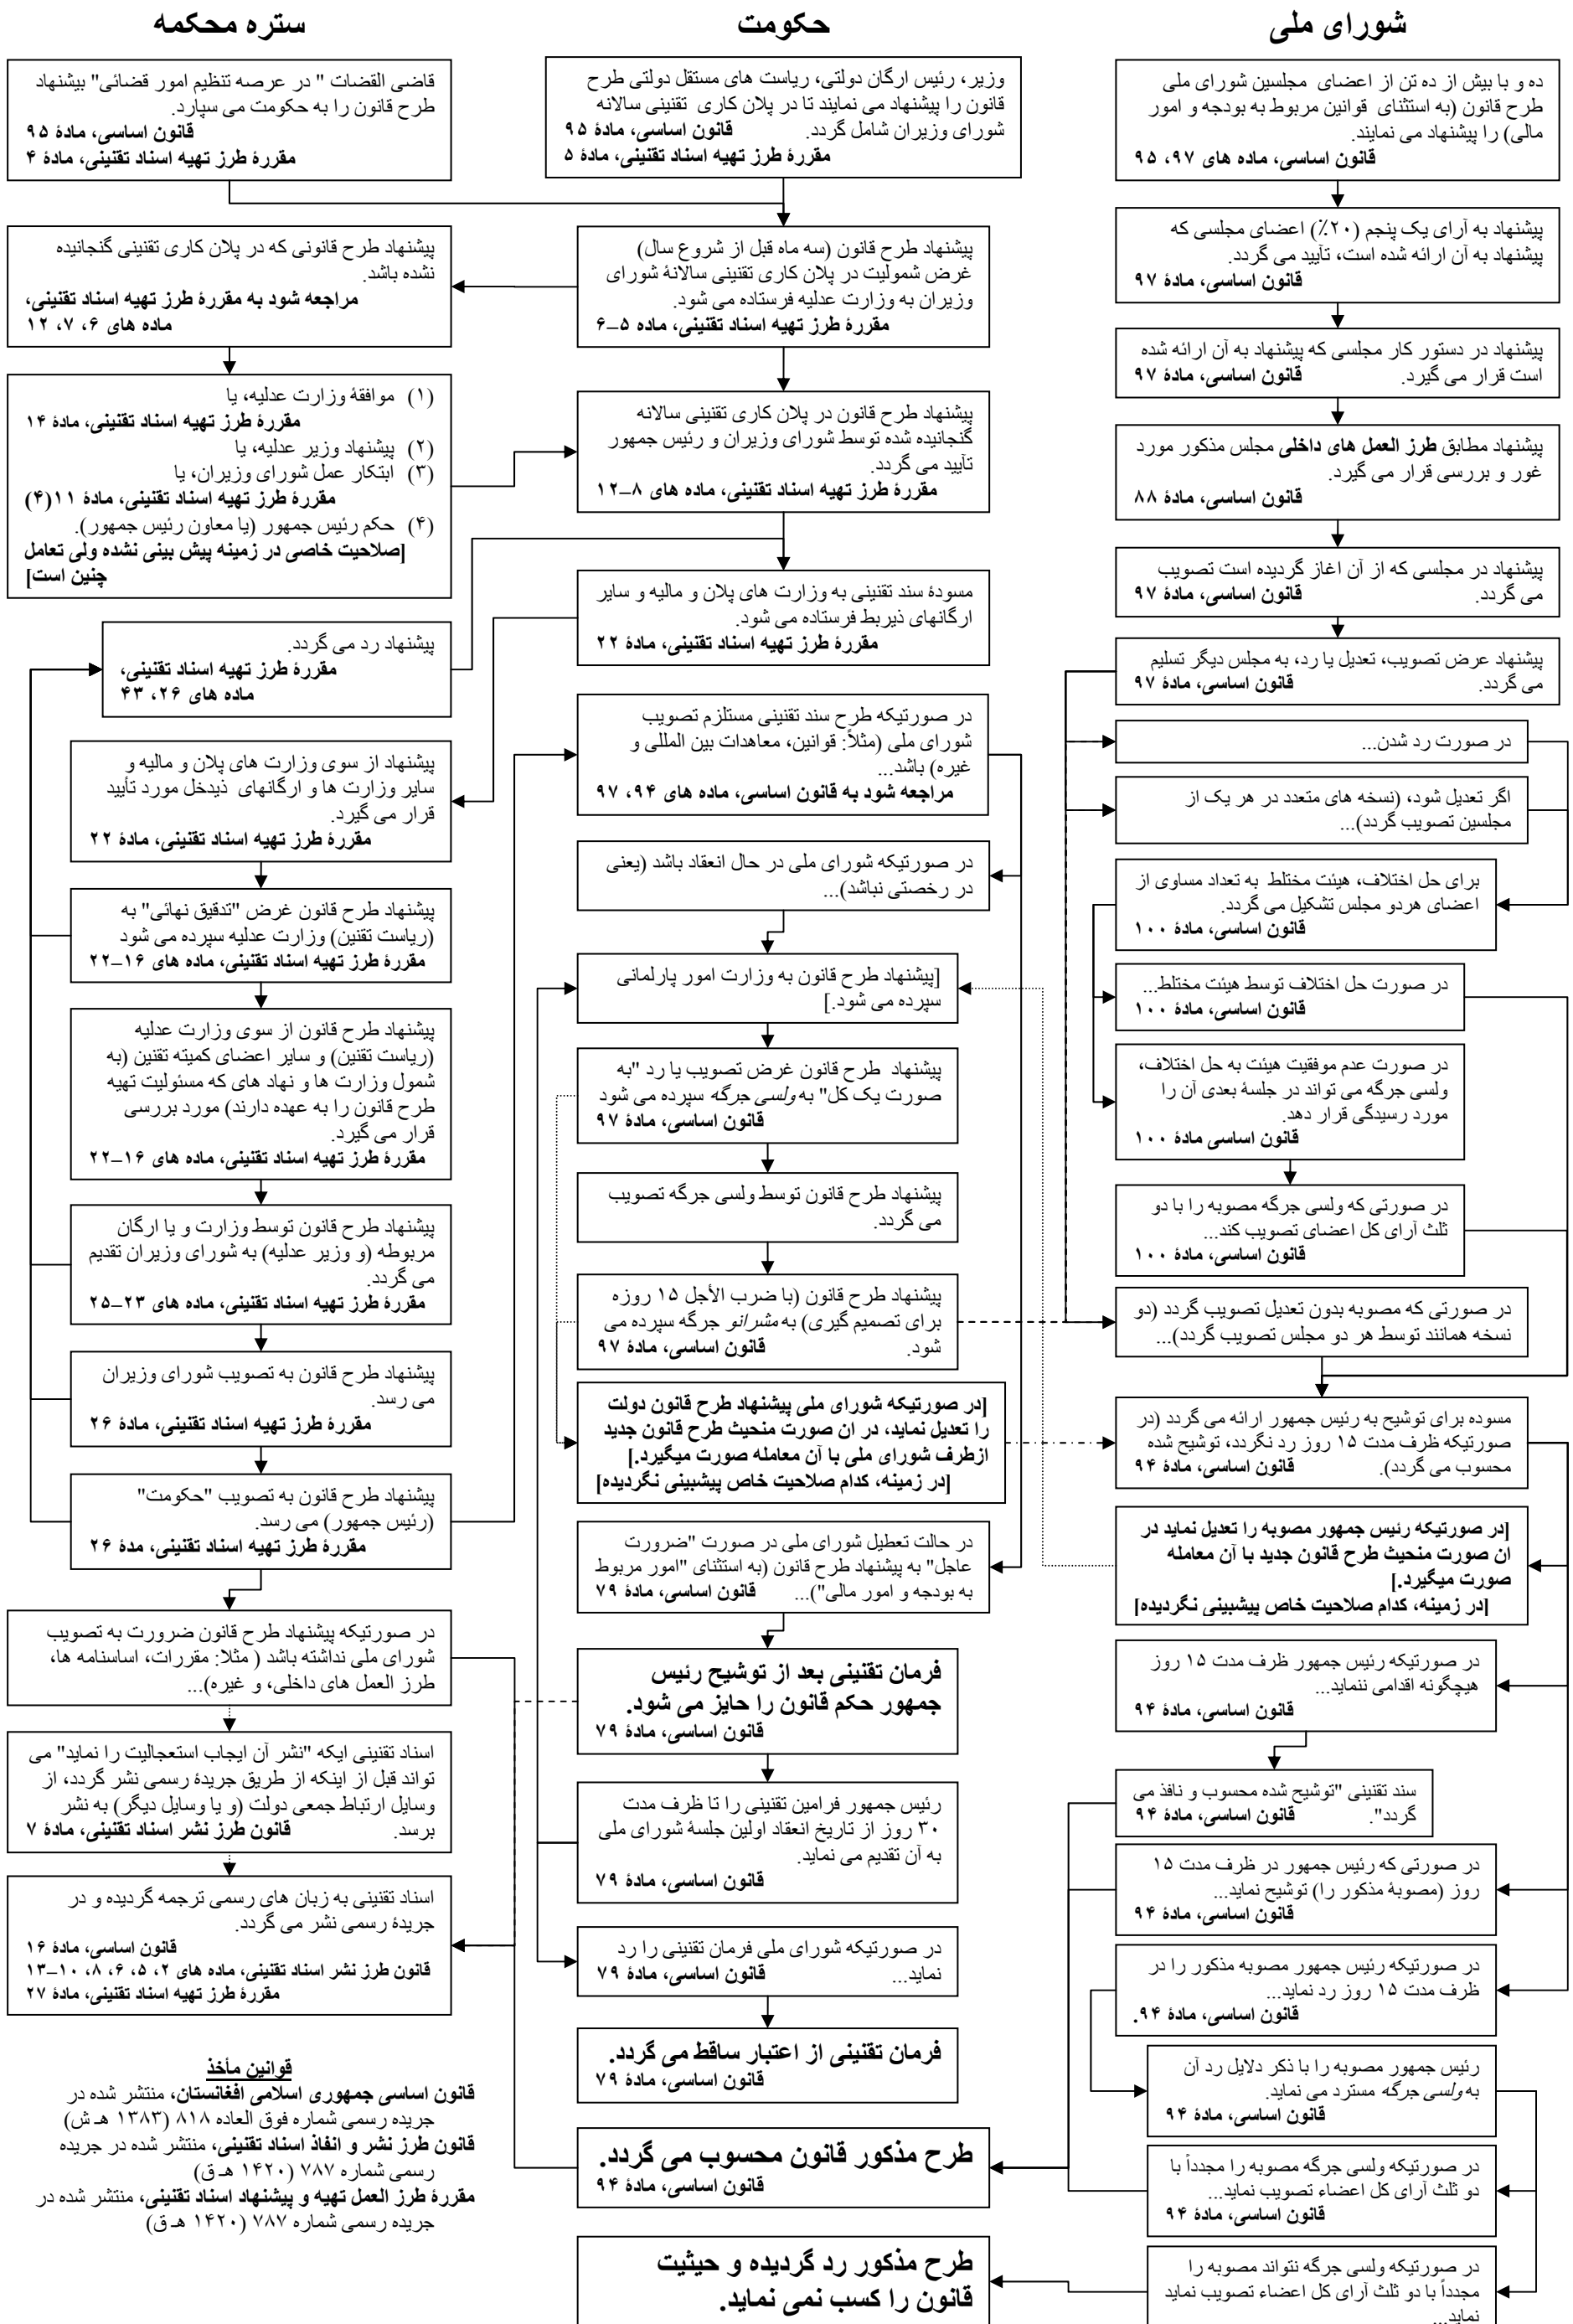 شورای ملی
ده و با بیش از ده تن از اعضای مجلسین شورای ملی
طرح قانون (به استثنای قوانین مربوط به بودجه و امور
مالی) را پیشنهاد می نمایند.
قانون اساسی، ماده های ۹۷، ۹۵
پیشنهاد به آرای یک پنجم (۲۰٪) اعضای مجلسی که
پیشنهاد به آن ارائه شده است، تأیید می گردد.
قانون اساسی، مادۀ ۹۷
پیشنهاد در دستور کار مجلسی که پیشنهاد به آن ارائه شده
است قرار می گیرد. قانون اساسی، مادۀ ۹۷
پیشنهاد مطابق طرز العمل های داخلی مجلس مذکور مورد
غور و بررسی قرار می گیرد.
قانون اساسی، مادۀ ۸۸
پیشنهاد در مجلسی که از آن اغاز گردیده است تصویب
می گردد. قانون اساسی، مادۀ ۹۷
پیشنهاد عرض تصویب، تعدیل یا رد، به مجلس دیگر تسلیم
می گردد. قانون اساسی، مادۀ ۹۷
در صورت رد شدن...
اگر تعدیل شود، (نسخه های متعدد در هر یک از
مجلسین تصویب گردد)...
برای حل اختلاف، هیئت مختلط به تعداد مساوی از
اعضای هردو مجلس تشکیل می گردد.
قانون اساسی، مادۀ ۱۰۰
در صورت حل اختلاف توسط هیئت مختلط...
قانون اساسی، مادۀ ۱۰۰
در صورت عدم موفقیت هیئت به حل اختلاف،
ولسی جرگه می تواند در جلسۀ بعدی آن را
مورد رسیدگی قرار دهد.
قانون اساسی مادۀ ۱۰۰
در صورتی که ولسی جرگه مصوبه را با دو
ثلث آرای کل اعضای تصویب کند...
قانون اساسی، مادۀ ۱۰۰
در صورتی که مصوبه بدون تعدیل تصویب گردد (دو
نسخه همانند توسط هر دو مجلس تصویب گردد)...
مسوده برای توشیح به رئیس جمهور ارائه می گردد (در
صورتیکه ظرف مدت ۱۵ روز رد نگردد، توشیح شده
محسوب می گردد). قانون اساسی، مادۀ ۹۴
[در صورتیکه رئیس جمهور مصوبه را تعدیل نماید در
ان صورت منحیث طرح قانون جدید با آن معامله
صورت میگیرد.]
[در زمینه، کدام صلاحیت خاص پیشبینی نگردیده]
در صورتیکه رئیس جمهور ظرف مدت ۱۵ روز
هیچگونه اقدامی ننماید...
قانون اساسی، مادۀ ۹۴
سند تقنینی "توشیح شده محسوب و نافذ می
گردد". قانون اساسی، مادۀ ۹۴
در صورتی که رئیس جمهور در ظرف مدت ۱۵
روز (مصوبۀ مذکور را) توشیح نماید...
قانون اساسی، مادۀ ۹۴
در صورتیکه رئیس جمهور مصوبه مذکور را در
ظرف مدت ۱۵ روز رد نماید...
قانون اساسی، مادۀ ۹۴.
رئیس جمهور مصوبه را با ذکر دلایل رد آن
به ولسی جرگه مسترد می نماید.
قانون اساسی، مادۀ ۹۴
در صورتیکه ولسی جرگه مصوبه را مجدداً با
دو ثلث آرای کل اعضاء تصویب نماید...
قانون اساسی، مادۀ ۹۴
در صورتیکه ولسی جرگه نتواند مصوبه را
مجدداً با دو ثلث آرای کل اعضاء تصویب نماید
نماید...
حکومت
وزیر، رئیس ارگان دولتی، ریاست های مستقل دولتی طرح
قانون را پیشنهاد می نمایند تا در پلان کاری تقنینی سالانه
شورای وزیران شامل گردد. قانون اساسی، مادۀ ۹۵
مقررۀ طرز تهیه اسناد تقنینی، مادۀ ۵
پیشنهاد طرح قانون (سه ماه قبل از شروع سال)
غرض شمولیت در پلان کاری تقنینی سالانۀ شورای
وزیران به وزارت عدلیه فرستاده می شود.
مقررۀ طرز تهیه اسناد تقنینی، ماده ۵–۶
پیشنهاد طرح قانون در پلان کاری تقنینی سالانه
گنجانیده شده توسط شورای وزیران و رئیس جمهور
تأیید می گردد.
مقررۀ طرز تهیه اسناد تقنینی، ماده های ۸–۱۲
مسودۀ سند تقنینی به وزارت های پلان و مالیه و سایر
ارگانهای ذیربط فرستاده می شود.
مقررۀ طرز تهیه اسناد تقنینی، مادۀ ۲۲
در صورتیکه طرح سند تقنینی مستلزم تصویب
شورای ملی (مثلاً: قوانین، معاهدات بین المللی و
غیره) باشد...
مراجعه شود به قانون اساسی، ماده های ۹۴، ۹۷
در صورتیکه شورای ملی در حال انعقاد باشد (یعنی
در رخصتی نباشد)...
[پیشنهاد طرح قانون به وزارت امور پارلمانی
سپرده می شود.]
پیشنهاد طرح قانون غرض تصویب یا رد "به
صورت یک کل" به ولسی جرگه سپرده می شود
قانون اساسی، مادۀ ۹۷
پیشنهاد طرح قانون توسط ولسی جرگه تصویب
می گردد.
پیشنهاد طرح قانون (با ضرب الأجل ۱۵ روزه
برای تصمیم گیری) به مشرانو جرگه سپرده می
شود. قانون اساسی، مادۀ ۹۷
[در صورتیکه شورای ملی پیشنهاد طرح قانون دولت
را تعدیل نماید، در ان صورت منحیث طرح قانون جدید
ازطرف شورای ملی با آن معامله صورت میگیرد.]
[در زمینه، کدام صلاحیت خاص پیشبینی نگردیده]
در حالت تعطیل شورای ملی در صورت "ضرورت
عاجل" به پیشنهاد طرح قانون (به استثنای "امور مربوط
به بودجه و امور مالی")... قانون اساسی، مادۀ ۷۹
فرمان تقنینی بعد از توشیح رئیس
جمهور حکم قانون را حایز می شود.
قانون اساسی، مادۀ ۷۹
رئیس جمهور فرامین تقنینی را تا ظرف مدت
۳۰ روز از تاریخ انعقاد اولین جلسۀ شورای ملی
به آن تقدیم می نماید.
قانون اساسی، مادۀ ۷۹
در صورتیکه شورای ملی فرمان تقنینی را رد
نماید... قانون اساسی، مادۀ ۷۹
فرمان تقنینی از اعتبار ساقط می گردد.
قانون اساسی، مادۀ ۷۹
طرح مذکور قانون محسوب می گردد.
قانون اساسی، مادۀ ۹۴
طرح مذکور رد گردیده و حیثیت
قانون را کسب نمی نماید.
ستره محکمه
قاضی القضات " در عرصه تنظیم امور قضائی" بیشنهاد
طرح قانون را به حکومت می سپارد.
قانون اساسی، مادۀ ۹۵
مقررۀ طرز تهیه اسناد تقنینی، مادۀ ۴
پیشنهاد طرح قانونی که در پلان کاری تقنینی گنجانیده
نشده باشد.
مراجعه شود به مقررۀ طرز تهیه اسناد تقنینی،
ماده های ۶، ۷، ۱۲
(۱) موافقۀ وزارت عدلیه، یا
مقررۀ طرز تهیه اسناد تقنینی، مادۀ ۱۴
(۲) پیشنهاد وزیر عدلیه، یا
(۳) ابتکار عمل شورای وزیران، یا
مقررۀ طرز تهیه اسناد تقنینی، مادۀ ۱۱(۴)
(۴) حکم رئیس جمهور (یا معاون رئیس جمهور).
[صلاحیت خاصی در زمینه پیش بینی نشده ولی تعامل
چنین است]
پیشنهاد رد می گردد.
مقررۀ طرز تهیه اسناد تقنینی،
ماده های ۲۶، ۴۳
پیشنهاد از سوی وزارت های پلان و مالیه و
سایر وزارت ها و ارگانهای ذیدخل مورد تأیید
قرار می گیرد.
مقررۀ طرز تهیه اسناد تقنینی، مادۀ ۲۲
پیشنهاد طرح قانون غرض "تدقیق نهائی" به
(ریاست تقنین) وزارت عدلیه سپرده می شود
مقررۀ طرز تهیه اسناد تقنینی، ماده های ۱۶–۲۲
پیشنهاد طرح قانون از سوی وزارت عدلیه
(ریاست تقنین) و سایر اعضای کمیته تقنین (به
شمول وزارت ها و نهاد های که مسئولیت تهیه
طرح قانون را به عهده دارند) مورد بررسی
قرار می گیرد.
مقررۀ طرز تهیه اسناد تقنینی، ماده های ۱۶–۲۲
پیشنهاد طرح قانون توسط وزارت و یا ارگان
مربوطه (و وزیر عدلیه) به شورای وزیران تقدیم
می گردد.
مقررۀ طرز تهیه اسناد تقنینی، ماده های ۲۳–۲۵
پیشنهاد طرح قانون به تصویب شورای وزیران
می رسد.
مقررۀ طرز تهیه اسناد تقنینی، مادۀ ۲۶
پیشنهاد طرح قانون به تصویب "حکومت"
(رئیس جمهور) می رسد.
مقررۀ طرز تهیه اسناد تقنینی، مدۀ ۲۶
در صورتیکه پیشنهاد طرح قانون ضرورت به تصویب
شورای ملی نداشته باشد ( مثلا: مقررات، اساسنامه ها،
طرز العمل های داخلی، و غیره)...
اسناد تقنینی ایکه "نشر آن ایجاب استعجالیت را نماید" می
تواند قبل از اینکه از طریق جریدۀ رسمی نشر گردد، از
وسایل ارتباط جمعی دولت (و یا وسایل دیگر) به نشر
برسد. قانون طرز نشر اسناد تقنینی، مادۀ ۷
اسناد تقنینی به زبان های رسمی ترجمه گردیده و در
جریدۀ رسمی نشر می گردد.
قانون اساسی، مادۀ ۱۶
قانون طرز نشر اسناد تقنینی، ماده های ۲، ۵، ۶، ۸، ۱۰–۱۳
مقررۀ طرز تهیه اسناد تقنینی، مادۀ ۲۷
قوانین مأخذ
قانون اساسی جمهوری اسلامی افغانستان، منتشر شده در
جریده رسمی شماره فوق العاده ۸۱۸ (۱۳۸۳ هـ ش)
قانون طرز نشر و انفاذ اسناد تقنینی، منتشر شده در جریده
رسمی شماره ۷۸۷ (۱۴۲۰ هـ ق)
مقررۀ طرز العمل تهیه و پیشنهاد اسناد تقنینی، منتشر شده در
جریده رسمی شماره ۷۸۷ (۱۴۲۰ هـ ق)